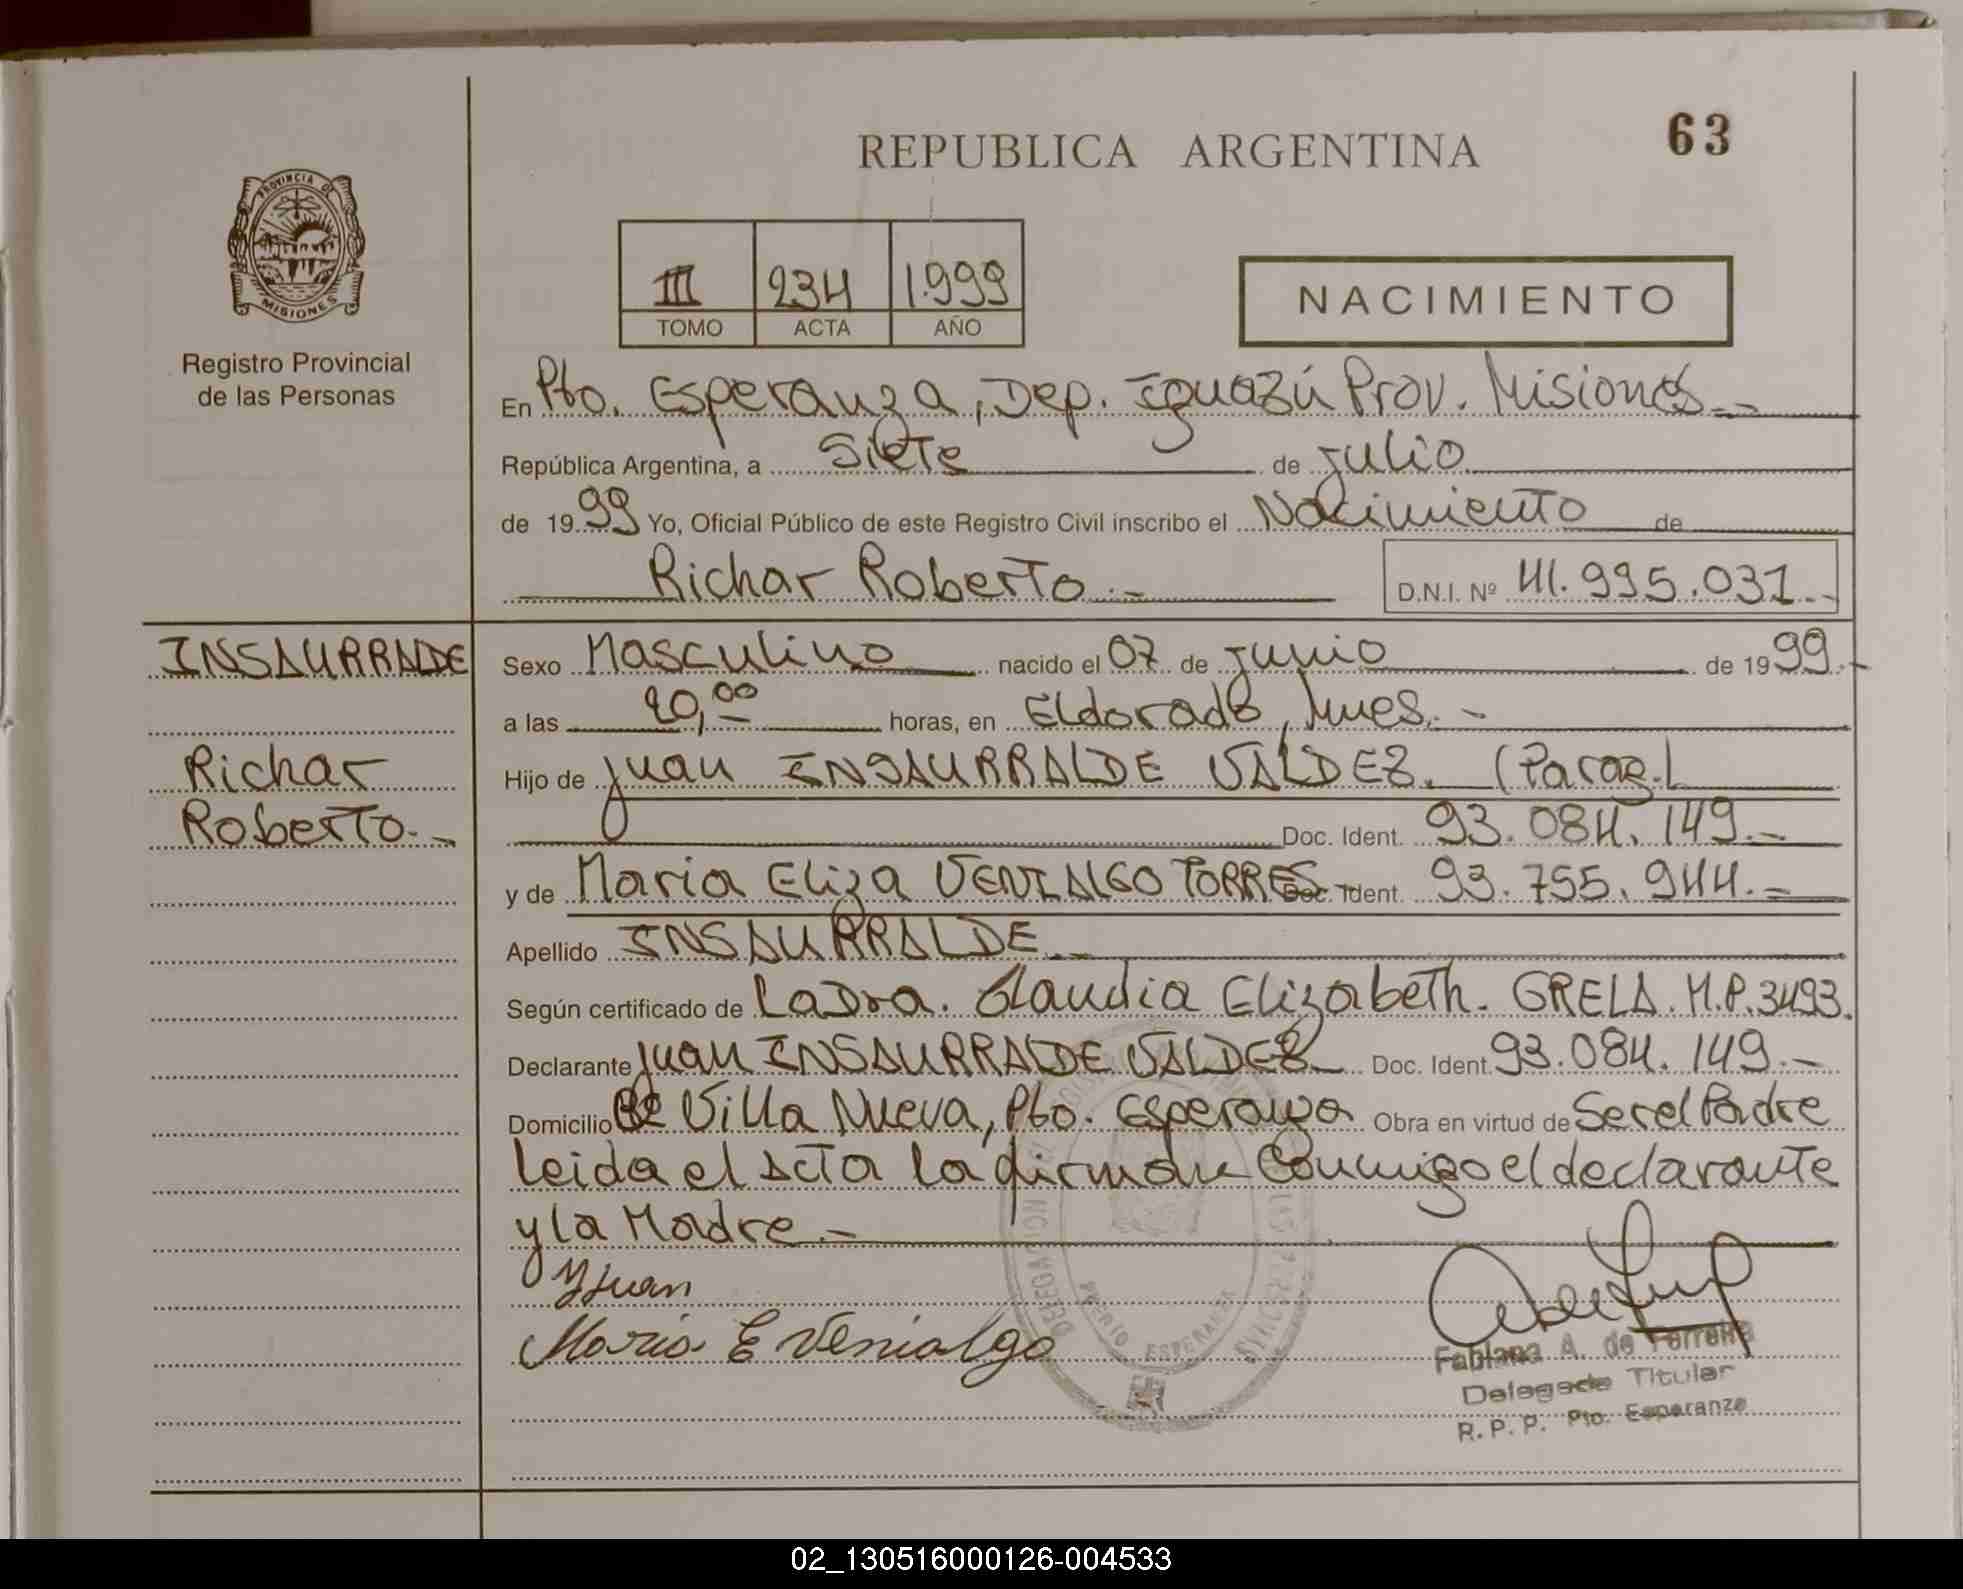 63
REPUBLICA ARGENTINA
PROVINCIA DE
MISIONES
Registro Provincial
de las Personas
III 234 1.999
TOMO ACTA AÑO
NACIMIENTO
En Pto. Esperanza, Dep. Iguazú Prov. Misiones.-
República Argentina, a Siete de julio
de 1999 Yo, Oficial Público de este Registro Civil inscribo el Nacimiento de
Richar Roberto.-
D.N.I. Nº 41.995.031.-
INSAURRADE
Richar
Roberto.-
Sexo Masculino nacido el 07 de junio de 1999.-
a las 20,00 horas, en Eldorado, Mnes.-
Hijo de Juan INSAURRALDE VALDEZ. (Parag.)
Doc. Ident. 93.084.149.-
y de Maria Eliza VENIALGO TORRES.- Doc. Ident. 93.755.944.-
Apellido INSAURRALDE.-
Según certificado de La Dra. Claudia Elizabeth. GRELA. M.P.3493.
Declarante Juan INSAURRALDE VALDEZ.- Doc. Ident. 93.084.149.-
Domicilio Villa Nueva, Pto. Esperanza Obra en virtud de Ser el Padre
leida el Acta la firman Conmigo el declarante
y la Madre.-
Juan
Maria E Venialgo
Fabiana A. de Ferreira
Delegada Titular
R. P. P. Pto. Esperanza
PUERTO ESPERANZA
02_130516000126-004533